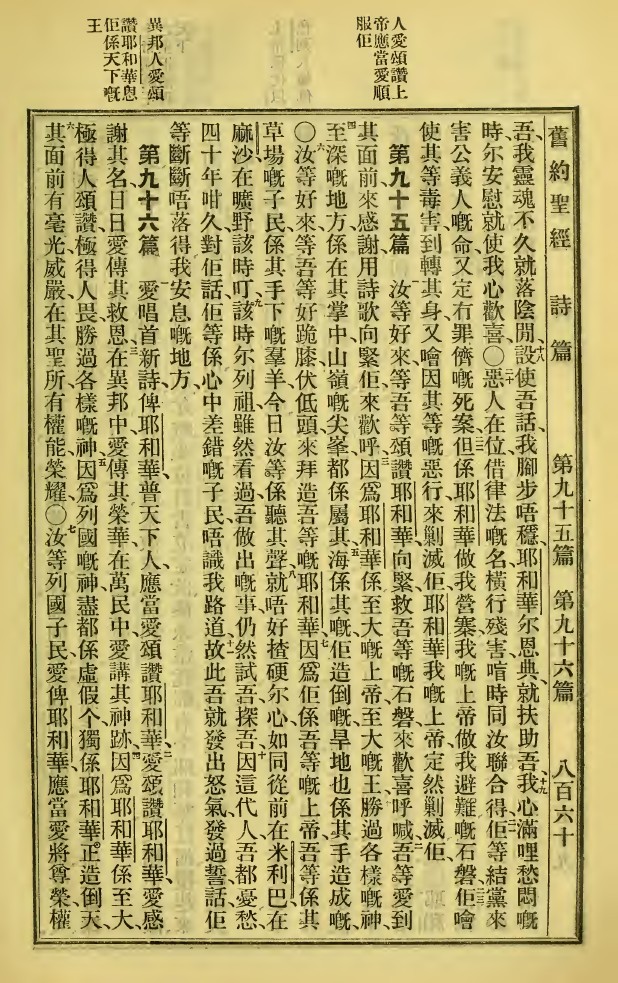 人愛頌讚上
帝應當愛順
服佢
異邦人愛頌
讚耶和華恩
佢係天下嘅
王
舊約聖經 詩篇 第九十五篇 第九十六篇 八百六十
吾、我靈魂不久就落陰閒、十八設使吾話、我腳步唔穩、耶和華尔恩典、就扶助吾、十九我心滿哩愁悶嘅
時、尔安慰就使我心歡喜〇二十惡人在位、借律法嘅名、橫行殘害、啱時同汝聯合得、二一佢等結黨來
害公義人嘅命、又定冇罪儕嘅死案、二二但係耶和華做我營寨、我嘅上帝做我避難嘅石磐、二三佢噲
使其等毒害、到轉其身、又噲因其等嘅惡行、來剿滅佢、耶和華我嘅上帝定然剿滅佢、
第九十五篇 一汝等好來、等吾等頌讚耶和華、向緊救吾等嘅石磐來歡喜呼喊、二吾等愛到
其面前來感謝、用詩歌向緊佢來歡呼、三因爲耶和華係至大嘅上帝、至大嘅王、勝過各樣嘅神、
四至深嘅地方、係在其掌中、山嶺嘅尖峯都係屬其、五海係其嘅、佢造倒嘅、旱地也係其手造成嘅、
〇六汝等好來、等吾等好跪膝伏低頭來拜造吾等嘅耶和華、七因爲佢係吾等嘅上帝、吾等係其
草場嘅子民、係其手下嘅羣羊、今日汝等係聽其聲、八就唔好揸硬尔心、如同從前在米利巴、在
麻沙在曠野該時、九叮該時尔列祖、雖然看過吾做出嘅事、仍然試吾探吾、十因這代人、吾都憂愁、
四十年咁久、對佢話、佢等係心中差錯嘅子民、唔識我路道、十一故此吾就發出怒氣、發過誓話、佢
等斷斷唔落得我安息嘅地方、
第九十六篇 一愛唱首新詩俾耶和華、普天下人、應當愛頌讚耶和華、二愛頌讚耶和華、愛感
謝其名、日日愛傳其救恩、三在異邦中愛傳其榮華、在萬民中愛講其神跡、四因爲耶和華係至大、
極得人頌讚、極得人畏、勝過各樣嘅神、五因爲列國嘅神盡都係虛假个、獨係耶和華正造倒天、
六其面前有毫光威嚴、在其聖所有權能榮耀、〇七汝等列國子民、愛俾耶和華、應當愛將尊榮權